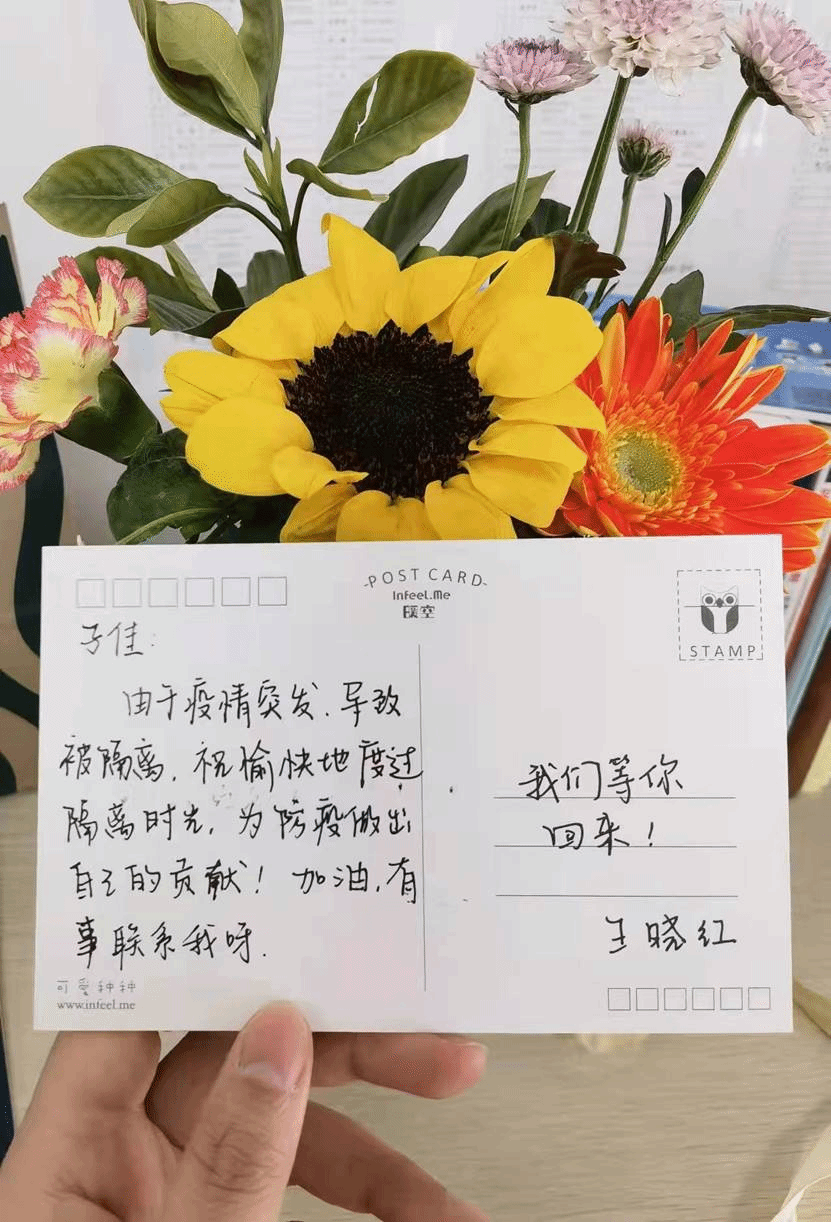 POST CARD
Infeel.Me
暖空
STAMP
子佳：
由于疫情突发，导致
被隔离，祝愉快地度过
隔离时光，为防疫做出
自己的贡献！加油，有
事联系我呀.
我们等你
回来！
王晓红
可爱种种
www.infeel.me